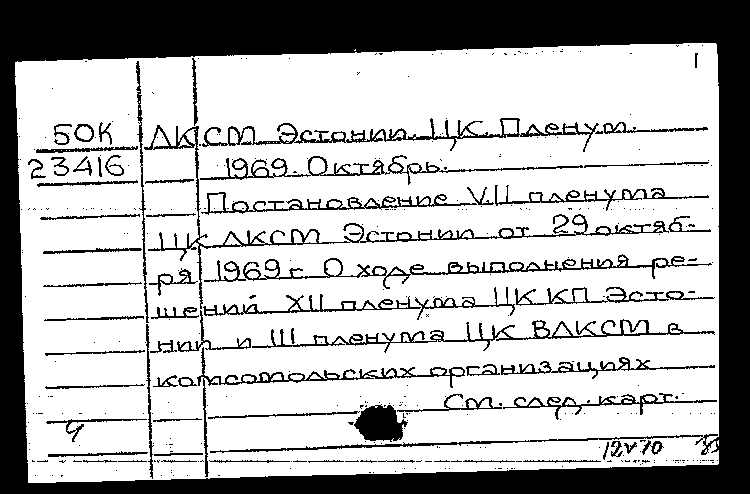 1
50К ЛКСМ Эстонии. ЦК. Пленум.
23416 1969. Октябрь.
Постановление VII пленума
ЦК ЛКСМ Эстонии от 29 октяб-
ря 1969 г. О ходе выполнения ре-
шений XII пленума ЦК КП Эсто-
нии и III пленума ЦК ВЛКСМ в
комсомольских организациях
См. след. карт.
ч
12 V 70